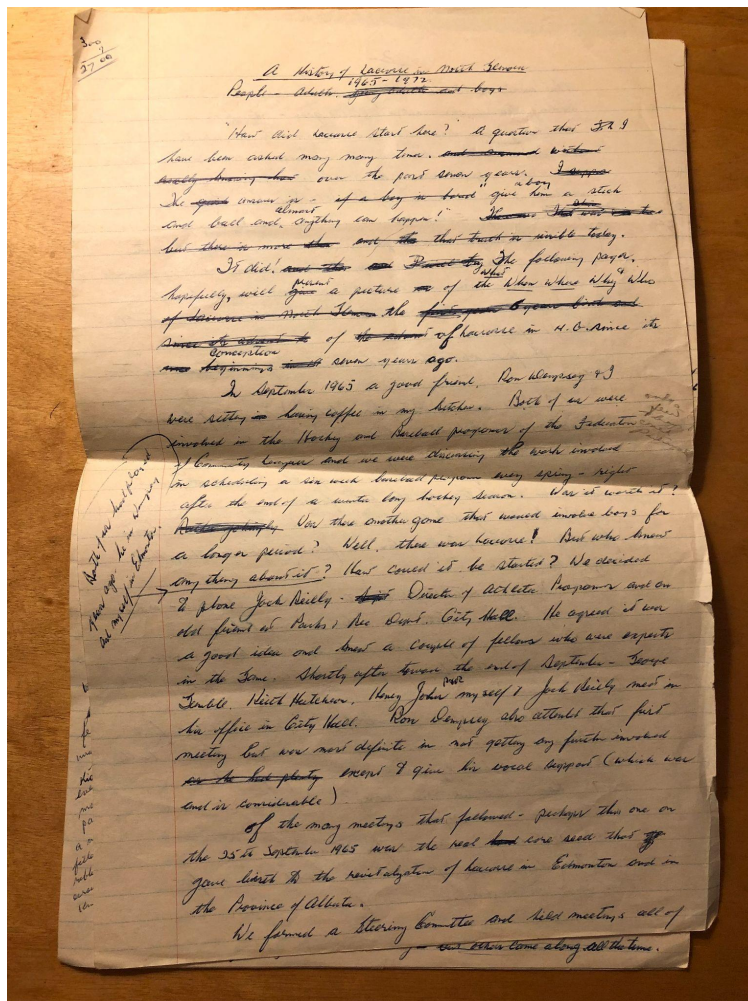 300
9
2700
A History of Lacrosse in North Glenora
1965-1972
People - Adults
"How did lacrosse start here?" A question that I
have been asked many many times
over the past seven years.
The answer is - if a boy is bored "give him a stick
and ball and almost anything can happen!"
but there is more and the that truth is visible today.
It did! The following pages,
hopefully, will present a picture of the What When Where Why & Who
of lacrosse in North Glenora the first year
of lacrosse in N.G. since its
conception seven years ago.
In September 1965 a good friend, Ron Dempsey & I
were sitting having coffee in my kitchen. Both of us were
involved in the Hockey and Baseball programs of the Federation
of Community Leagues and we were discussing the work involved
in scheduling a six week baseball program every spring - right
after the end of a winter long hockey season. Was it worth it?
Was there another game that would involve boys for
a longer period? Well, there was lacrosse! But who knew
anything about it? How could it be started? We decided
Both of us had played
years ago. he in Winnipeg
and myself in Edmonton.
to phone Jock Reilly - Director of Athletic Programs and an
old friend at Parks & Rec Dept. City Hall. He agreed it was
a good idea and knew a couple of fellows who were experts
in the Game. Shortly after toward the end of September - George
Temble, Keith Hutchison, Henry John myself & Jock Reilly met in
his office in City Hall. Ron Dempsey also attended that first
meeting but was most definite in not getting any further involved
as he had plenty except to give his vocal support (which was
and is considerable)
Of the many meetings that followed - perhaps this one on
the 25th September 1965 was the real core seed that
gave birth to the revitalization of lacrosse in Edmonton and in
the Province of Alberta.
We formed a Steering Committee and held meetings all of
but others came along all the time.